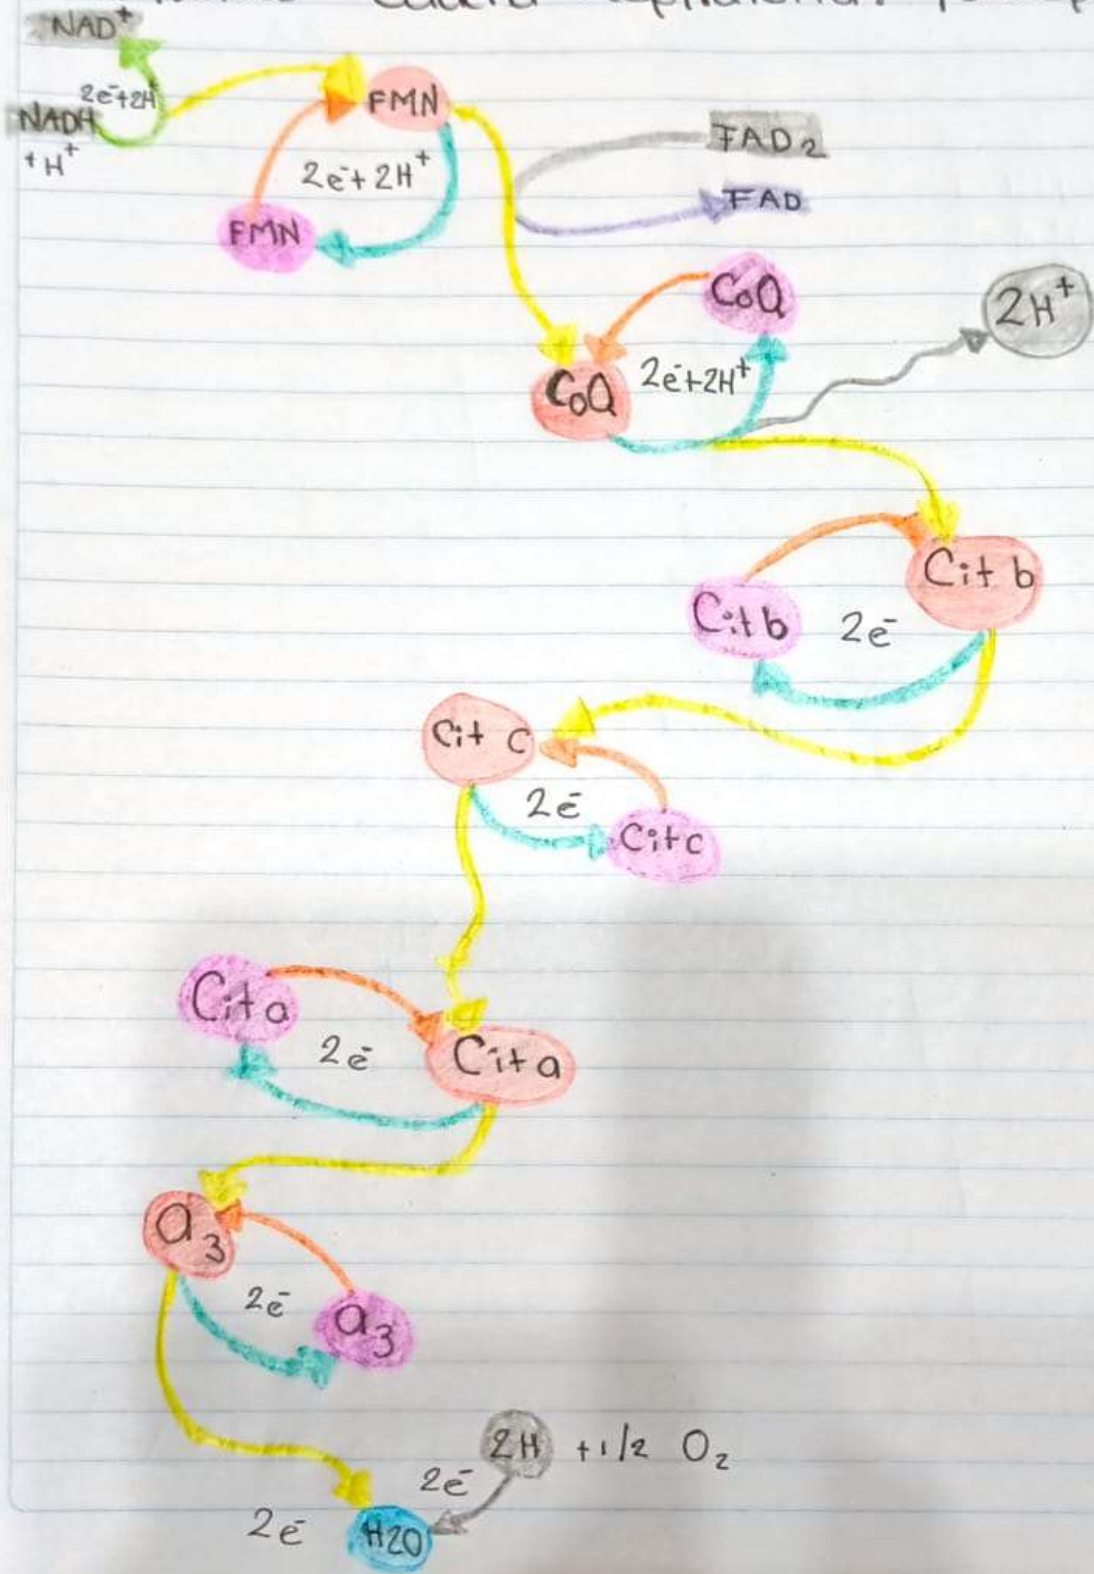 NAD⁺
2e⁻+2H
NADH
+H⁺
FMN
2e⁻+2H⁺
FMN
FAD₂
FAD
CoQ
2H⁺
CoQ
2e⁻+2H⁺
Cit b
Cit b
2e⁻
Cit c
2e⁻
Cit c
Cit a
2e⁻
Cit a
a₃
2e⁻
a₃
2H +1/2 O₂
2e⁻
2e⁻
H2O